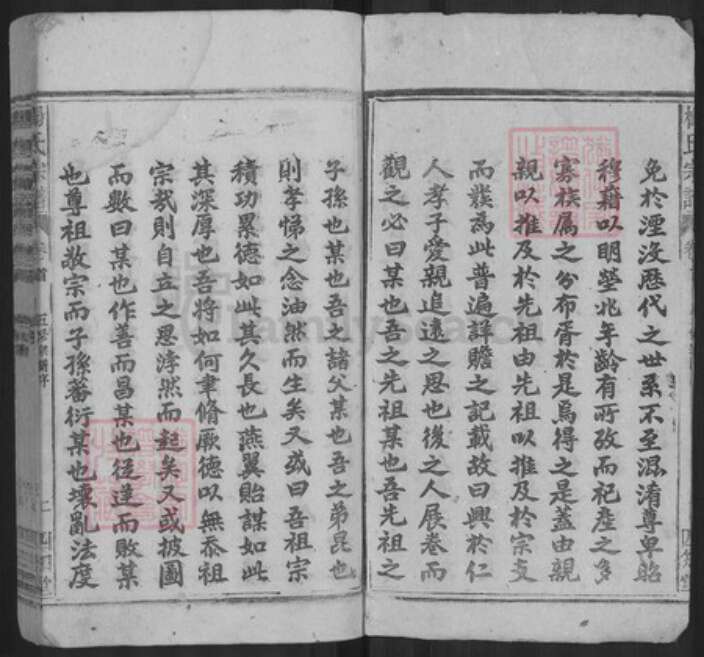 免於湮没歷代之世系不至混淆尊卑昭
穆藉以明塋兆年齡有所攷而祀產之多
寡族屬之分布胥於是焉得之是蓋由親
親以推及於先祖由先祖以推及於宗支
而襆為此普遍詳贍之記載故曰興於仁
人孝子愛親追遠之思也後之人展卷而
觀之必曰某也吾之先祖某也吾先祖之
子孫也某也吾之諸父某也吾之弟昆也
則孝悌之念油然而生矣又或曰吾祖宗
積功累德如此其久長也燕翼貽謀如此
其深厚也吾將如何聿脩厥德以無忝祖
宗哉則自立之思浡然而起矣又或披圖
而數曰某也作善而昌某也從逆而敗某
也尊祖敬宗而子孫蕃衍某也壞亂法度
氏宗譜
卷首